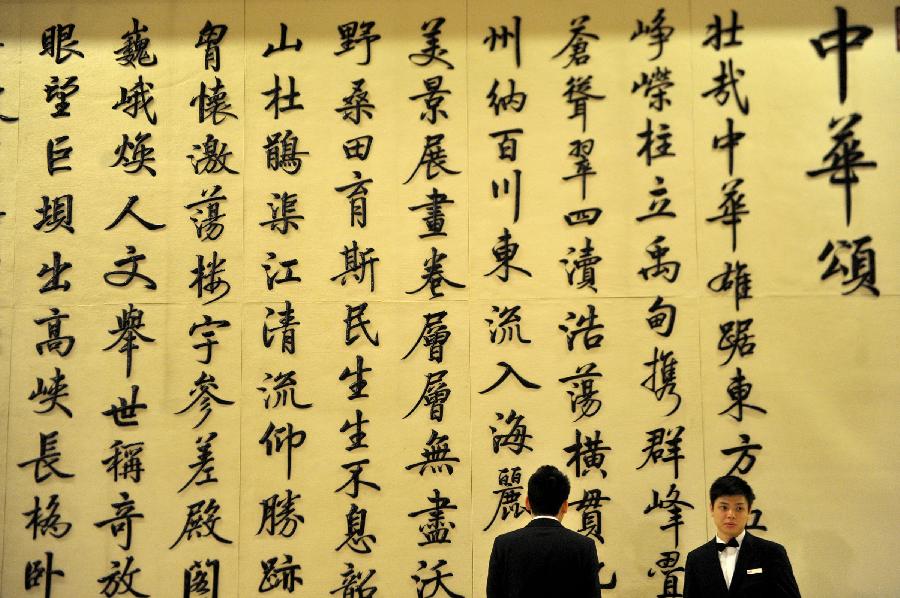 中華頌
壯哉中華雄踞東方
崢嶸柱立禹甸携群峰疊
蒼聳翠四瀆浩蕩橫貫
州納百川東流入海麗
美景展畫卷層層無盡沃
野桑田育斯民生生不息韶
山杜鵑渠江清流仰勝跡
胷懷激蕩楼宇參差殿閣
巍峨焕人文舉世稱奇放
眼望巨垻出高峡長橋卧